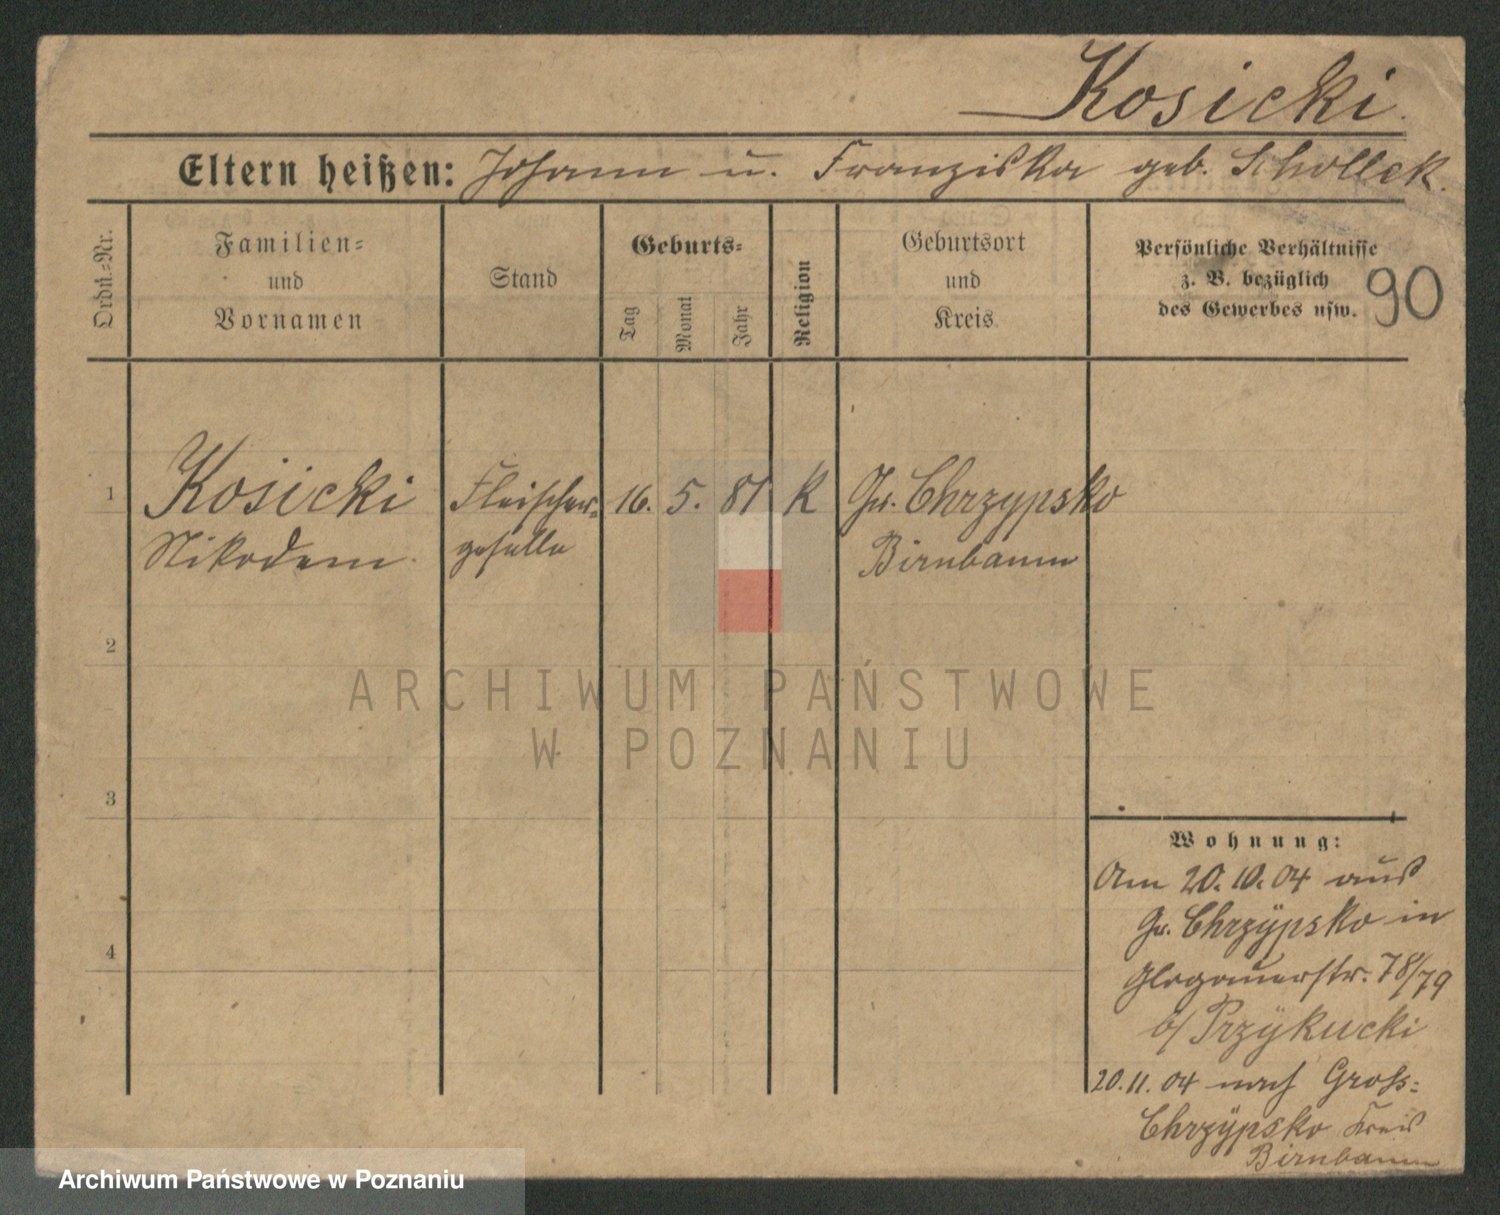 Kosicki.
Eltern heißen: Johann u. Franziska geb. Schollek.
Ordn.=Nr.
Familien=
und
Vornamen
Stand
Geburts=
Tag
Monat
Jahr
Religion
Geburtsort
und
Kreis
Persönliche Verhältnisse
z. B. bezüglich
des Gewerbes usw.
90
1 Kosicki Fleischer- 16. 5. 81 K Gr. Chrzypsko
Nikodem geselle Birnbaum
2
3
4
Wohnung:
Am 20.10.04 aus
Gr. Chrzÿpsko in
Glogauerstr. 78/79
b/ Przÿkucki
20.11.04 nach Gross=
Chrzÿpsko Kreis
Birnbaum
ARCHIWUM PAŃSTWOWE
W POZNANIU
Archiwum Państwowe w Poznaniu